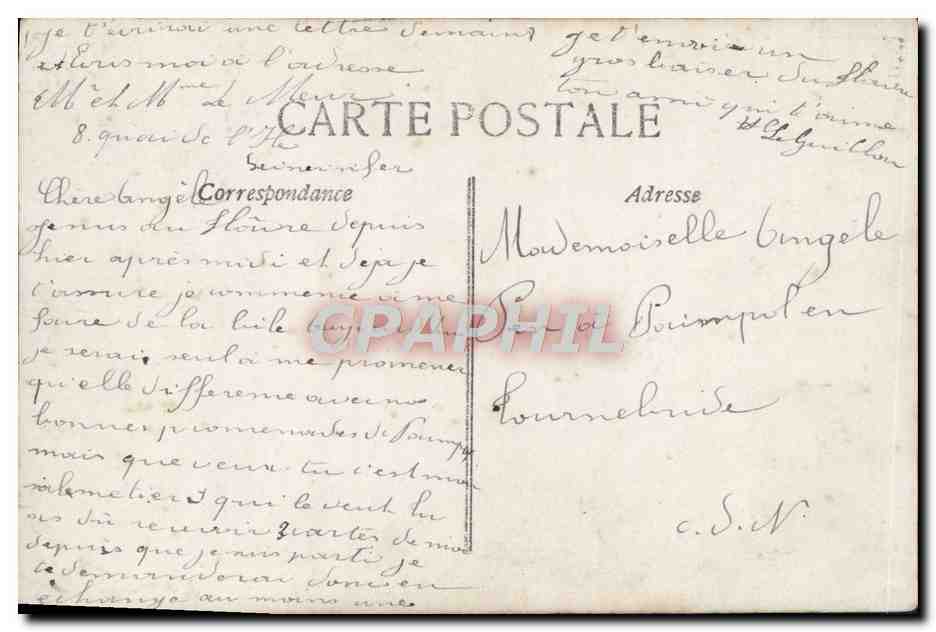 je t'écrirai une lettre demain
et Ecris moi à l'adresse
Mr et Mme Le Meur
8. quai de l'Ile
je t'envoie un
gros baiser du Hâvre
ton ami qui t'aime
Le Guillou
CARTE POSTALE
Correspondance
Chère Angèle
je suis au Hâvre depuis
hier après midi et deja je
t'assure je commence à me
faire de la bile
je serai seul à me promener
qu'elle differeme avec nos
bonnes promenades de Paimpol
mais que veux-tu c'est mon
sale metier qui le veut tu
as dû recevoir 2 cartes de moi
depuis que je suis parti je
te demanderai donc en
échange au moins une
Adresse
Mademoiselle Angèle
Pen à Paimpol en
Tournebride
C.d.N.
CPAPHIL